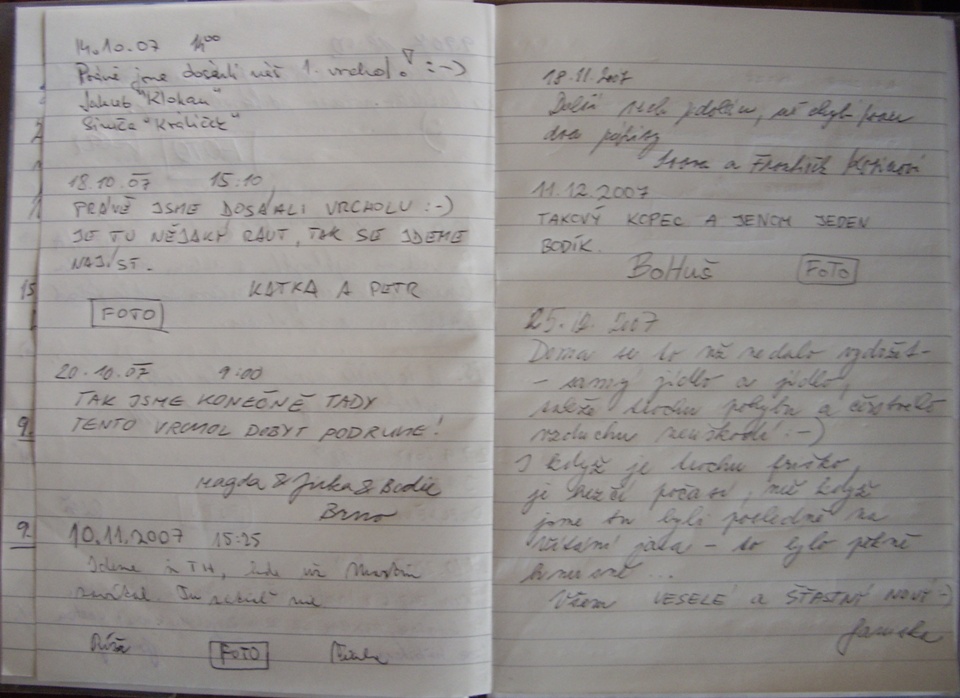 14.10.07 1400
Právě jsme dosáhli náš 1. vrchol! :-)
Jakub "Klokan"
Simča "Králíček"
18.10.07 15:10
PRÁVĚ JSME DOSÁHLI VRCHOLU :-)
JE TO NĚJAKÝ RAUT, TAK SE JDEME
NAJÍST.
KATKA A PETR
FOTO
20.10.07 9:00
TAK JSME KONEČNĚ TADY
TENTO VRCHOL DOBYT PODRUHÉ!
Magda & Jirka & Bedie
Brno
10.11.2007 15:25
Jdeme z TH, kde už Martin
Růža FOTO
15
9.
9.
18.11.2007
Další vrch zdolán, už chybí jenom
dva
a František
11.12.2007
TAKOVÝ KOPEC A JENOM JEDEN
BODÍK.
BoHuš FOTO
25.12.2007
Doma se to už nedalo vydržet -
- samý jídlo a jídlo,
takže trochu pohybu a čerstvého
vzduchu neuškodí :-)
I když je trochu frisko,
je hezčí počasí, než když
jsme tu byli posledně na
vítání jara - to bylo pěkně
hnusně ...
Všem VESELÉ a ŠŤASTNÝ NOVÝ :-)
Jaruska